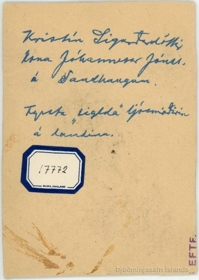 Kristín Sigurðardóttir
kona Jóhannesar Jóns.
á Sandhaugum
Fyrsta "lígeldá" ljósmóðirin
á landinu.
17772
Þjóðminjasafn Íslands
EFTF.